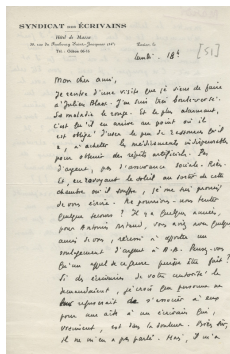 SYNDICAT DES ÉCRIVAINS
Hôtel de Massa
38, rue du Faubourg Saint-Jacques (14e)
Tél. : Odéon
lundi. 18h [51]
Mon cher ami,
Je rentre d'une visite que je viens de faire
à Julien Blanc. J'en suis très bouleversé.
Sa maladie le ronge. Et le plus alarmant,
c'est qu'il en arrive au point où il
est obligé d'user le peu de ressources qu'il
a, à acheter les médicaments indispensables
pour obtenir des répits artificiels. Pas
d'argent, pas d'assurance sociale. Rien.
Et, en revoyant le soleil au sortir de cette
chambre où il souffre, je me suis promis
de vous écrire. Ne pourrions-nous tenter
quelque secours ? Il y a quelques années,
pour Antonin Artaud, vous aviez avec quelques
amis à vous, réussi à apporter un
soulagement d'argent à A.A. Pensez-vous
qu'un appel de ce genre puisse être fait ?
Si des écrivains de votre autorité le
demandaient, je crois que personne ne
refuserait de s'associer à eux
pour une aide à un écrivain qui,
vraiment, est dans la douleur. Bien sûr,
il ne m'en a pas parlé. Mais, j'en ai